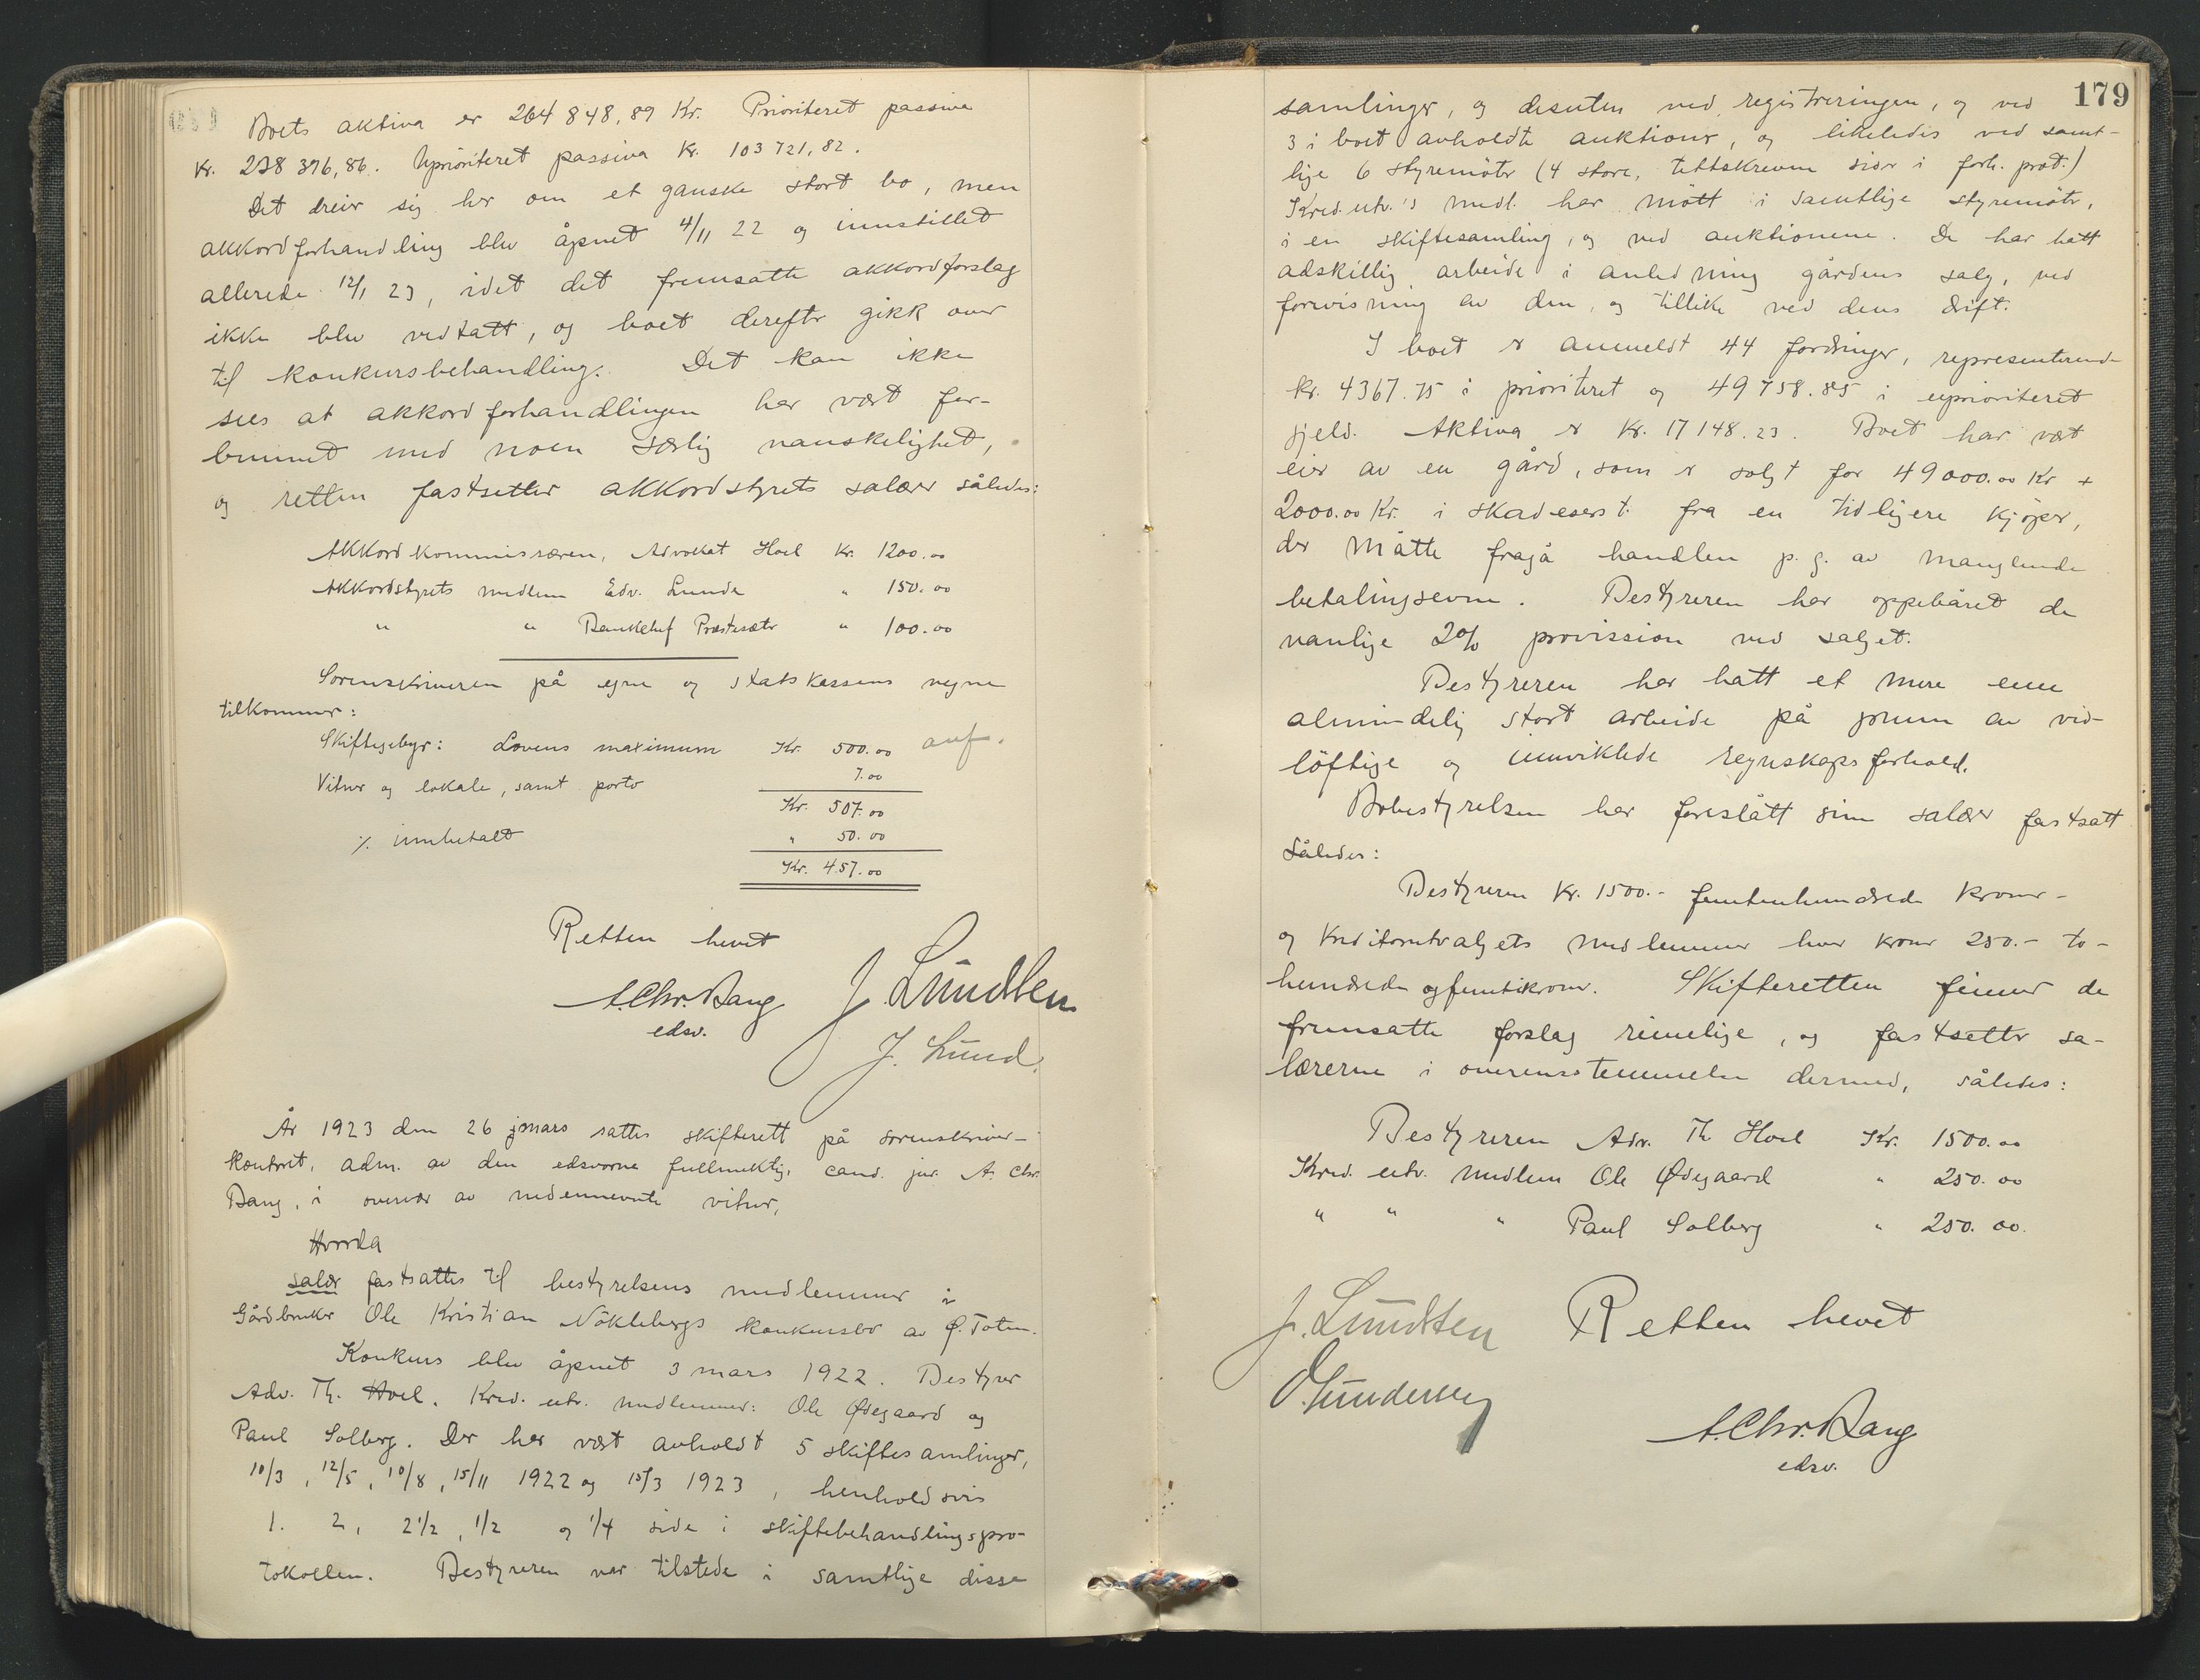 Boets aktiva er 264 848,89 Kr. Prioriteret passiva
Kr. 238 376,86. Uprioriteret passiva Kr. 103 721,82.
Det dreier sig her om et ganske stort bo, men
akkordforhandling blev åpnet 4/11 22 og innstillet
allerede 12/1 23, idet det fremsatte akkordforslag
ikke blev vedtatt, og boet derefter gikk over
til konkursbehandling. Det kan ikke
sees at akkordforhandlingen har vært for-
bunnet med noen særlig vanskelighet,
og retten fastsetter akkordstyrets salær således:
Akkordkommissæren, Advokat Hoel Kr. 1200.00
Akkordstyrets medlem Edv. Lunde " 150.00
" " Bankchef Præstesæter " 100.00
Sorenskriveren på egne og statskassens vegne
tilkommer:
Skiftegebyr: Lovens maximum Kr. 500.00 anf.
Vitner og lokale, samt porto 7.00
Kr. 507.00
% innbetalt " 50.00
Kr. 457.00
Retten hevet
A. Chr. Bang J. Lundsten
edsv.
J. Lund.
År 1923 den 26 mars sattes skifterett på sorenskriver-
kontoret, adm. av den edsvorne fullmektig, cand. jur. A. Chr.
Bang, i overvær av nedennevnte vitner,
Hvorda
salær fastsattes til bestyrelsens medlemmer i
Gårdbruker Ole Kristian Nøklebergs konkursbo av Ø. Toten.
Konkurs blev åpnet 3 mars 1922. Bestyrer
Adv. Th. Hoel. Kred. utv. medlemmer: Ole Ødegaard og
Paul Solberg. Der har vært avholdt 5 skiftesamlinger,
10/3, 12/5, 10/8, 15/11 1922 og 15/3 1923, henholdsvis
1. 2, 2 1/2, 1/2 og 1/4 side i skiftebehandlingspro-
tokollen. Bestyreren var tilstede i samtlige disse
179
samlinger, og desuten ved registreringen, og ved
3 i boet avholdte auktioner, og likeledes ved samt-
lige 6 styremöter (4 store, tettskrevne sider i forh. prot.)
Kred. utv.'s medl. har mött i samtlige styremöter,
i en skiftesamling, og ved auktionene. De har hatt
adskillig arbeide i anledning gårdens salg, ved
forevisning av den, og tillike ved dens drift.
I boet er anmeldt 44 fordringer, representerende
kr. 4367.75 i prioritert og 49 758.85 i uprioriteret
gjeld. Aktiva er Kr. 17 148.23. Boet har vært
eier av en gård, som er solgt for 49 000.00 Kr +
2000.00 Kr. i skadeserst. fra en tidligere kjöper,
der måtte fragå handlen p. g. av manglende
betalingsevne. Bestyreren har oppebåret de
vanlige 2% provission ved salget.
Bestyreren har hatt et mere enn
almindelig stort arbeide på grunn av vid-
löftige og innviklede regnskapsforhold.
Bobestyrelsen har foreslått sine salær fastsatt
således:
Bestyreren Kr. 1500.- femtenhundrede kroner -
og kreditorutvalgets medlemmer hver kroner 250.- to-
hundrede og femtikroner. Skifteretten finner de
fremsatte forslag rimelige, og fastsetter sa-
lærerne i overensstemmelse dermed, således:
Bestyreren Adv. Th Hoel Kr. 1500.00
Kred. utv. medlem Ole Ødegaard " 250.00
" " " Paul Solberg " 250.00.
J. Lundsten Retten hevet
A. Chr. Bang
edsv.